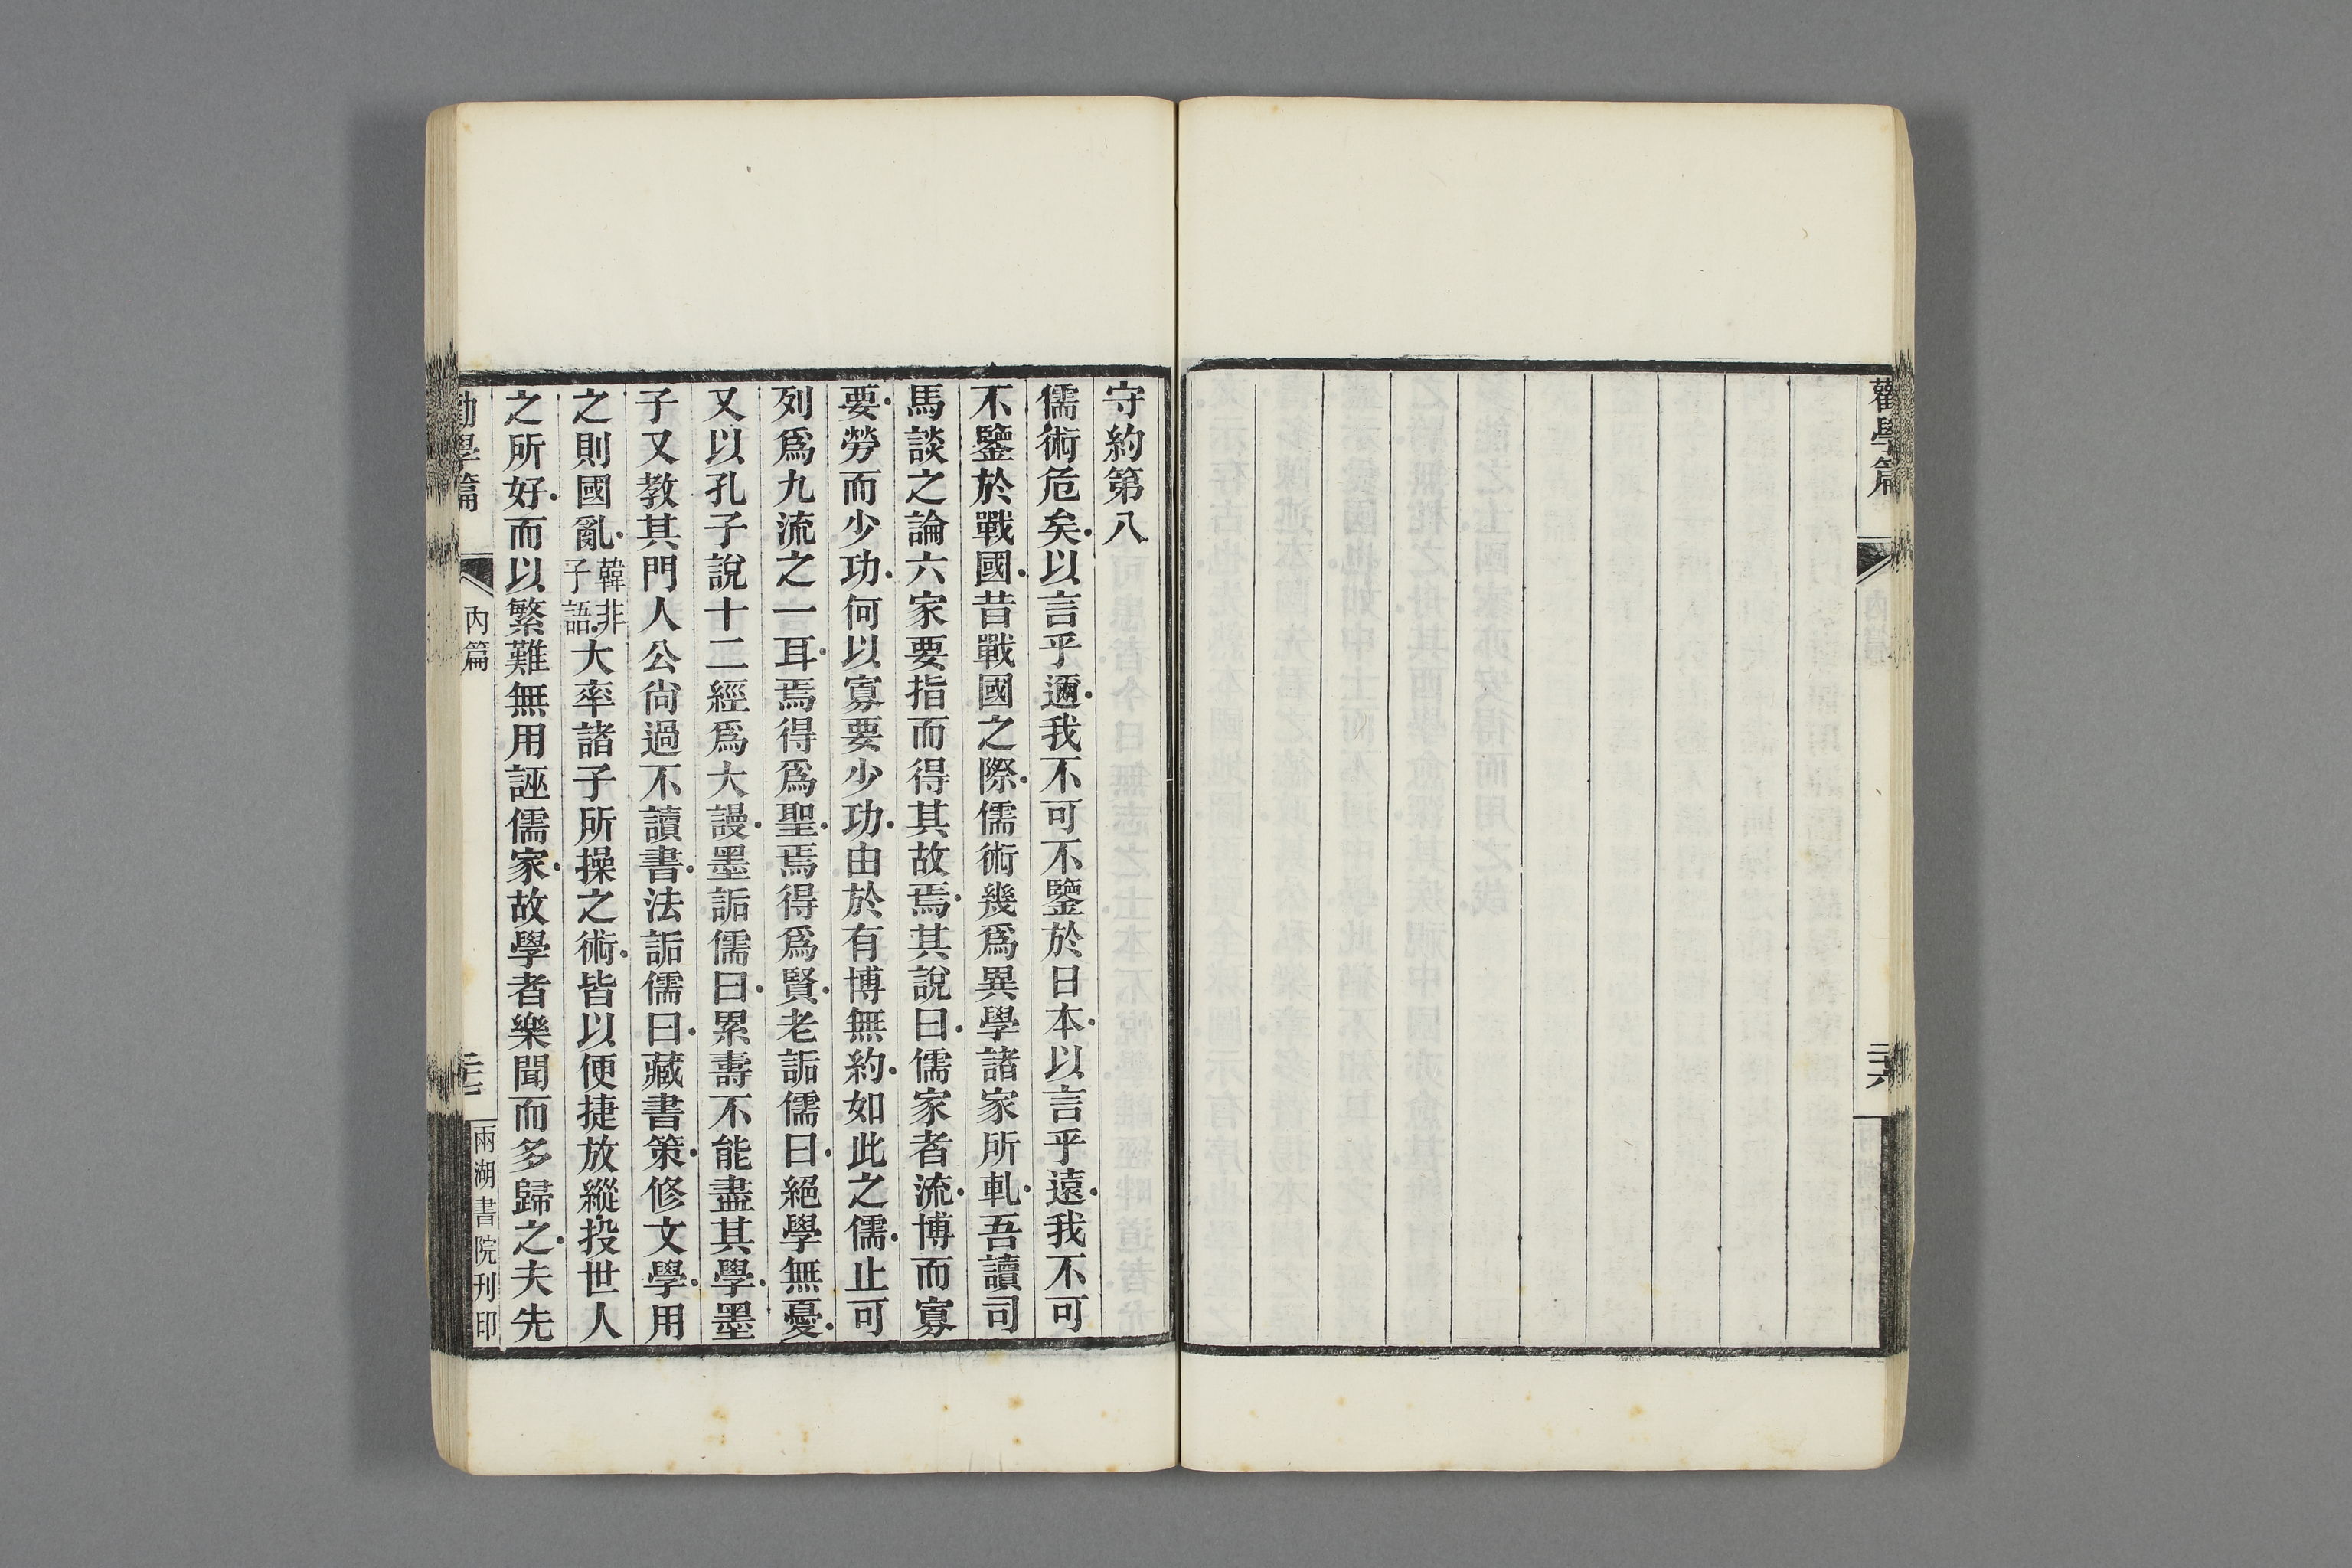 勸學篇
二十六
守約第八
儒術危矣以言乎邇我不可不鑒於日本以言乎遠我不可
不鑒於戰國昔戰國之際儒術幾爲異學諸家所軋吾讀司
馬談之論六家要指而得其故焉其說曰儒家者流博而寡
要勞而少功何以寡要少功由於有博無約如此之儒止可
列爲九流之一耳焉得爲聖焉得爲賢老詬儒曰絕學無憂
又以孔子說十二經爲大謾墨詬儒曰累壽不能盡其學墨
子又教其門人公尙過不讀書法詬儒曰藏書策修文學用
之則國亂韓非子語大率諸子所操之術皆以便捷放縱投世人
之所好而以繁難無用誣儒家故學者樂聞而多歸之夫先
勸學篇
內篇
兩湖書院刊印